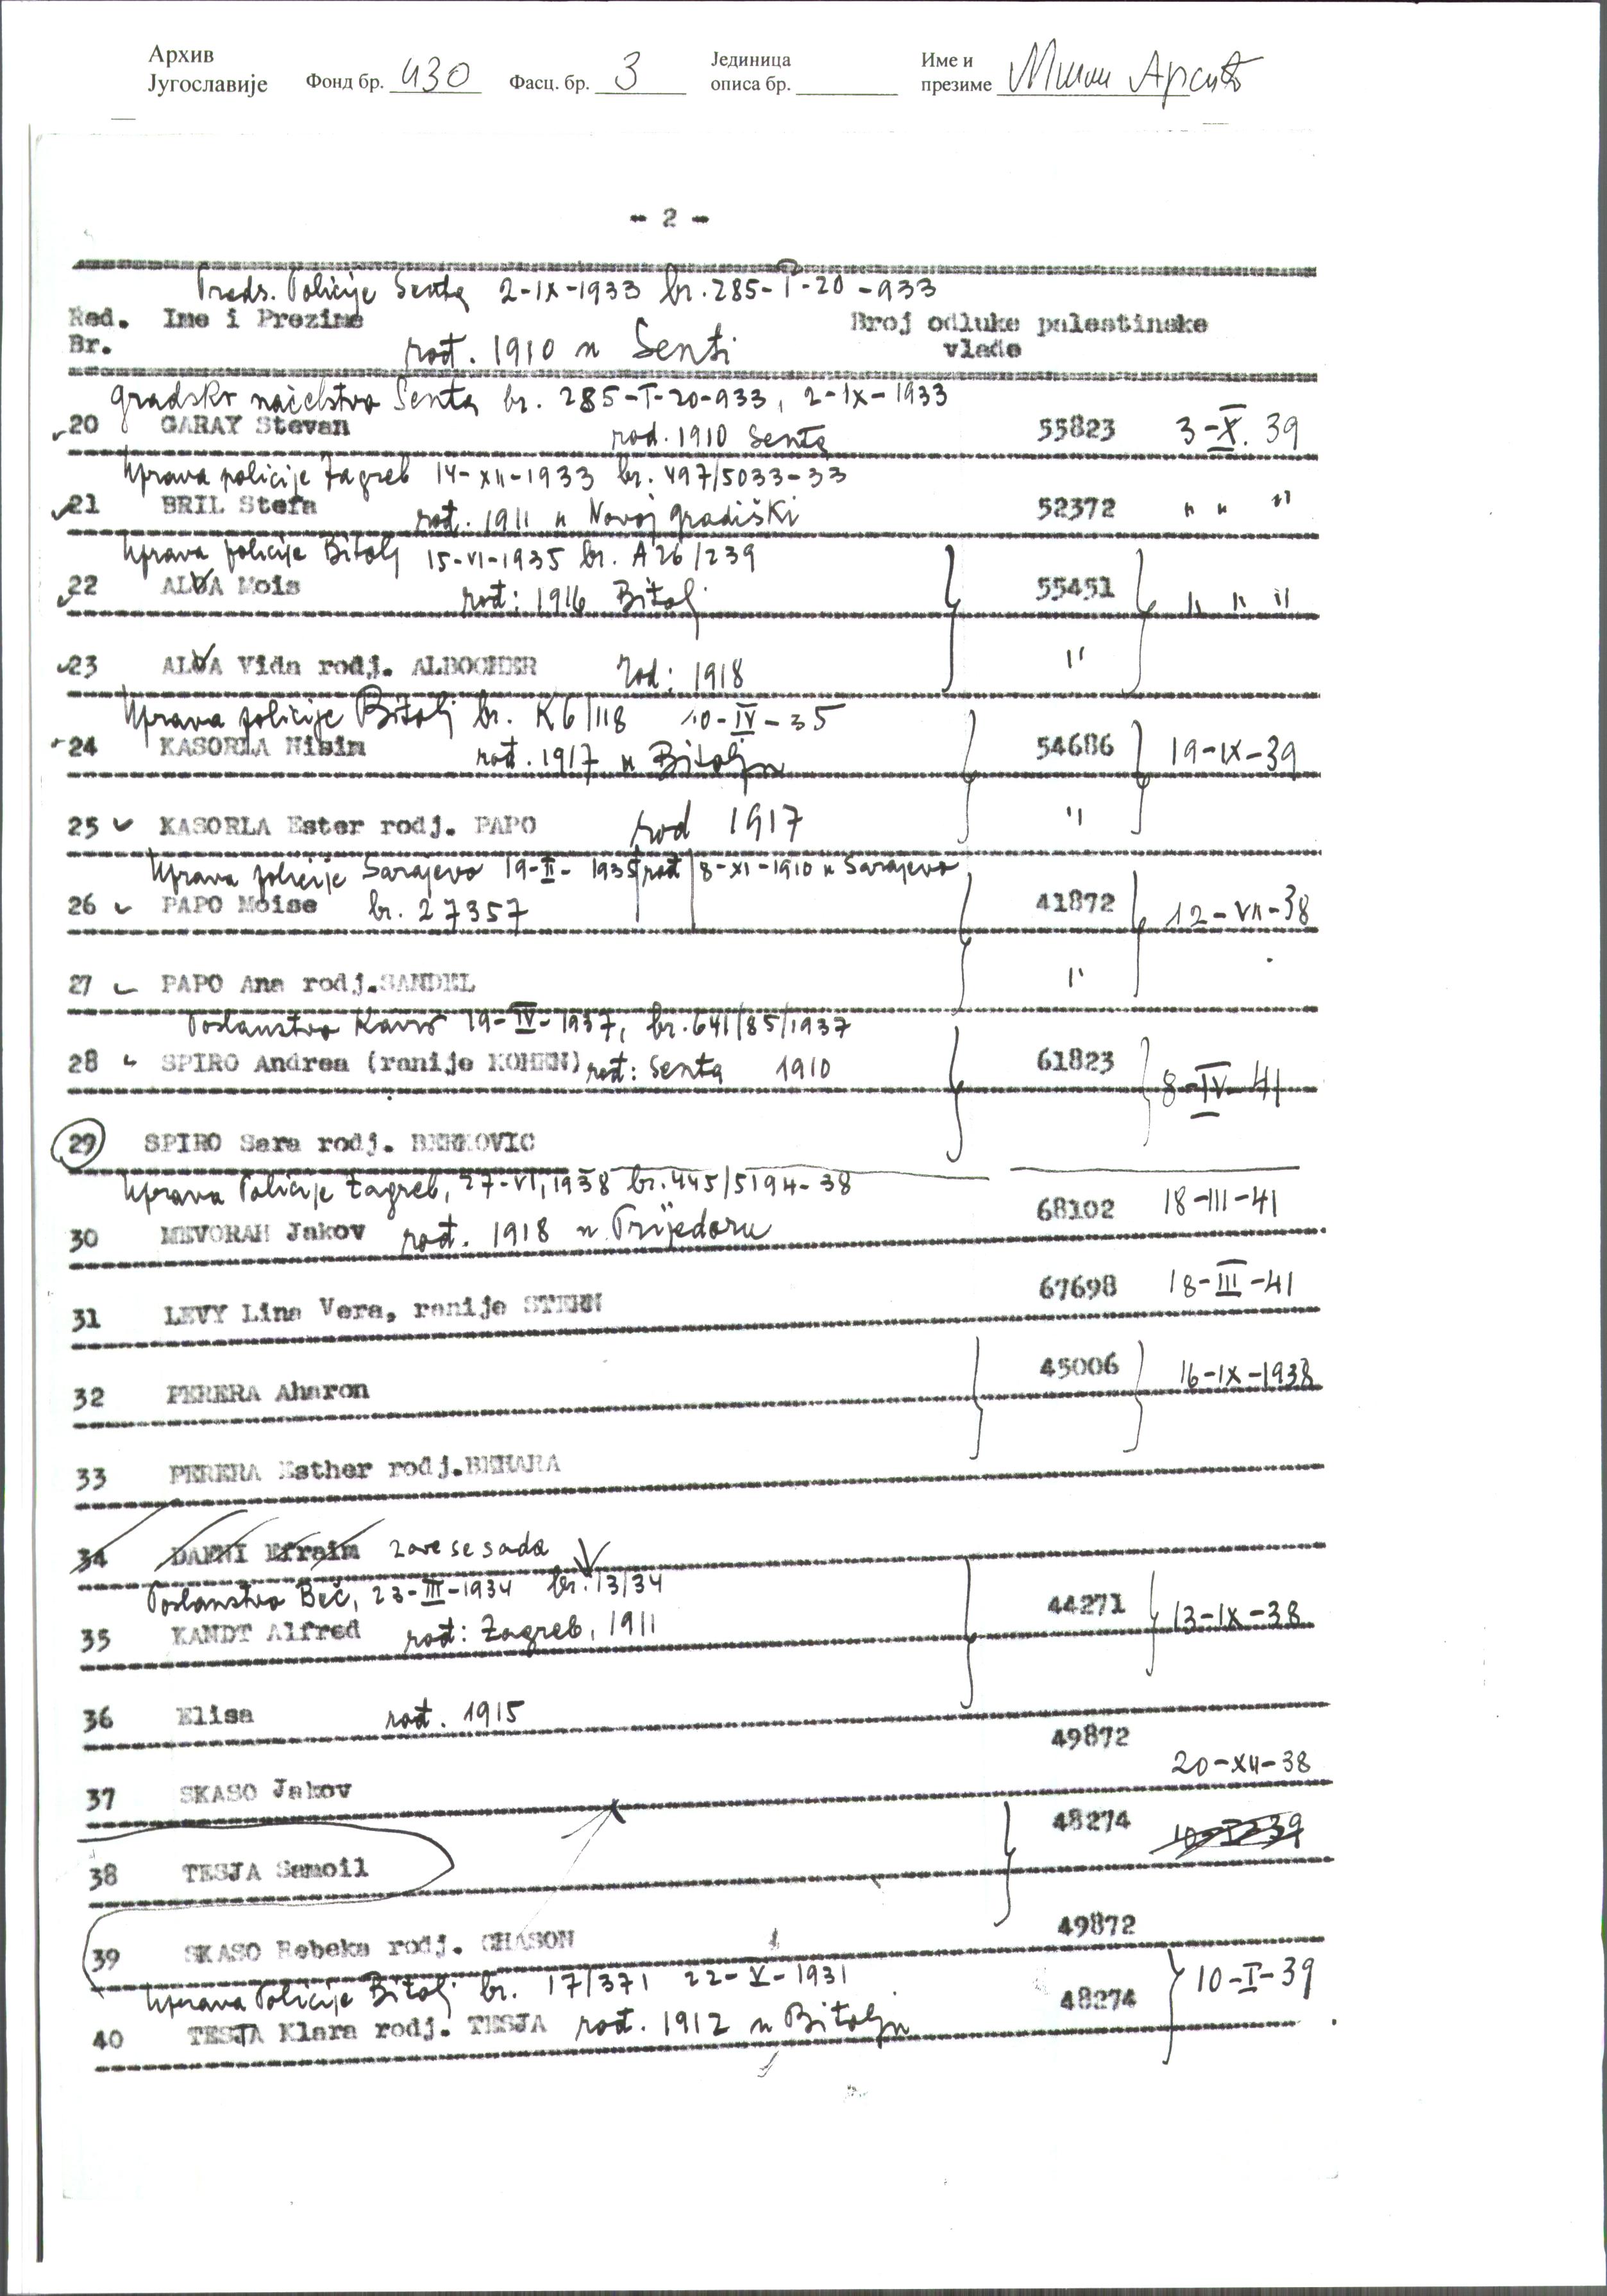 Архив
Југославије Фонд бр. 430 Фасц. бр. 3 Јединица описа бр. Име и презиме
- 2 -
Preds. Policije Senta 2-IX-1933 br. 285-I-20-933
Red. Br. Ime i Prezime Broj odluke palestinske vlade
rođ. 1910 u Senti
gradsko načelstvo Senta br. 285-I-20-933, 2-IX-1933
20 GARAY Stevan rod. 1910 Senta 55823 3-X. 39
Uprava policije Zagreb 14-XII-1933 br. 497/5033-33
21 BRIL Stefa rođ. 1911 u Novoj gradiški 52372 " " "
Uprava policije Bitolj 15-VI-1935 br. A26/239
22 Mois rođ: 1916 Bitolj 55451 " " "
23 Vida rodj. ALBOCHER rod: 1918 "
Uprava policije Bitolj br. K6/118 10-IV-35
24 KASORLA Nisim rođ. 1917 u Bitolju 54686 19-IX-39
25 KASORLA Ester rodj. PAPO rod 1917 "
Uprava policije Sarajevo 19-II-1935 rođ 8-XI-1910 u Sarajevo
26 PAPO Moise br. 27357 41872 12-VII-38
27 PAPO Ana rodj.SANDEL "
Poslanstvo Kairo 19-IV-1937, br. 641/85/1937
28 SPIRO Andrea (ranije KOHEN) rođ: Senta 1910 61823 8-IV-41
29 SPIRO Sara rodj. BERKOVIC
Uprava Policije Zagreb, 27-VI, 1938 br. 445/5194-38
30 MEVORAH Jakov rođ. 1918 u Prijedoru 68102 18-III-41
31 LEVY Lina Vera, ranije STERN 67698 18-III-41
32 PERERA Aharon 45006 16-IX-1938
33 PERERA Esther rodj.BEHARA
34 DAFNI Efraim zove se sada
Poslanstvo Beč, 23-III-1934 br. 13/34
35 KANDT Alfred rođ: Zagreb, 1911 44271 13-IX-38
36 Elisa rođ. 1915
37 SKASO Jakov 49872 20-XII-38
38 TESJA Samoil 48274 10-I-39
39 SKASO Rebeka rodj. CHASON 49872
Uprava Policije Bitolj br. 17/371 22-V-1931
40 TESJA Klara rodj. TESJA rođ. 1912 u Bitolju 48274 10-I-39